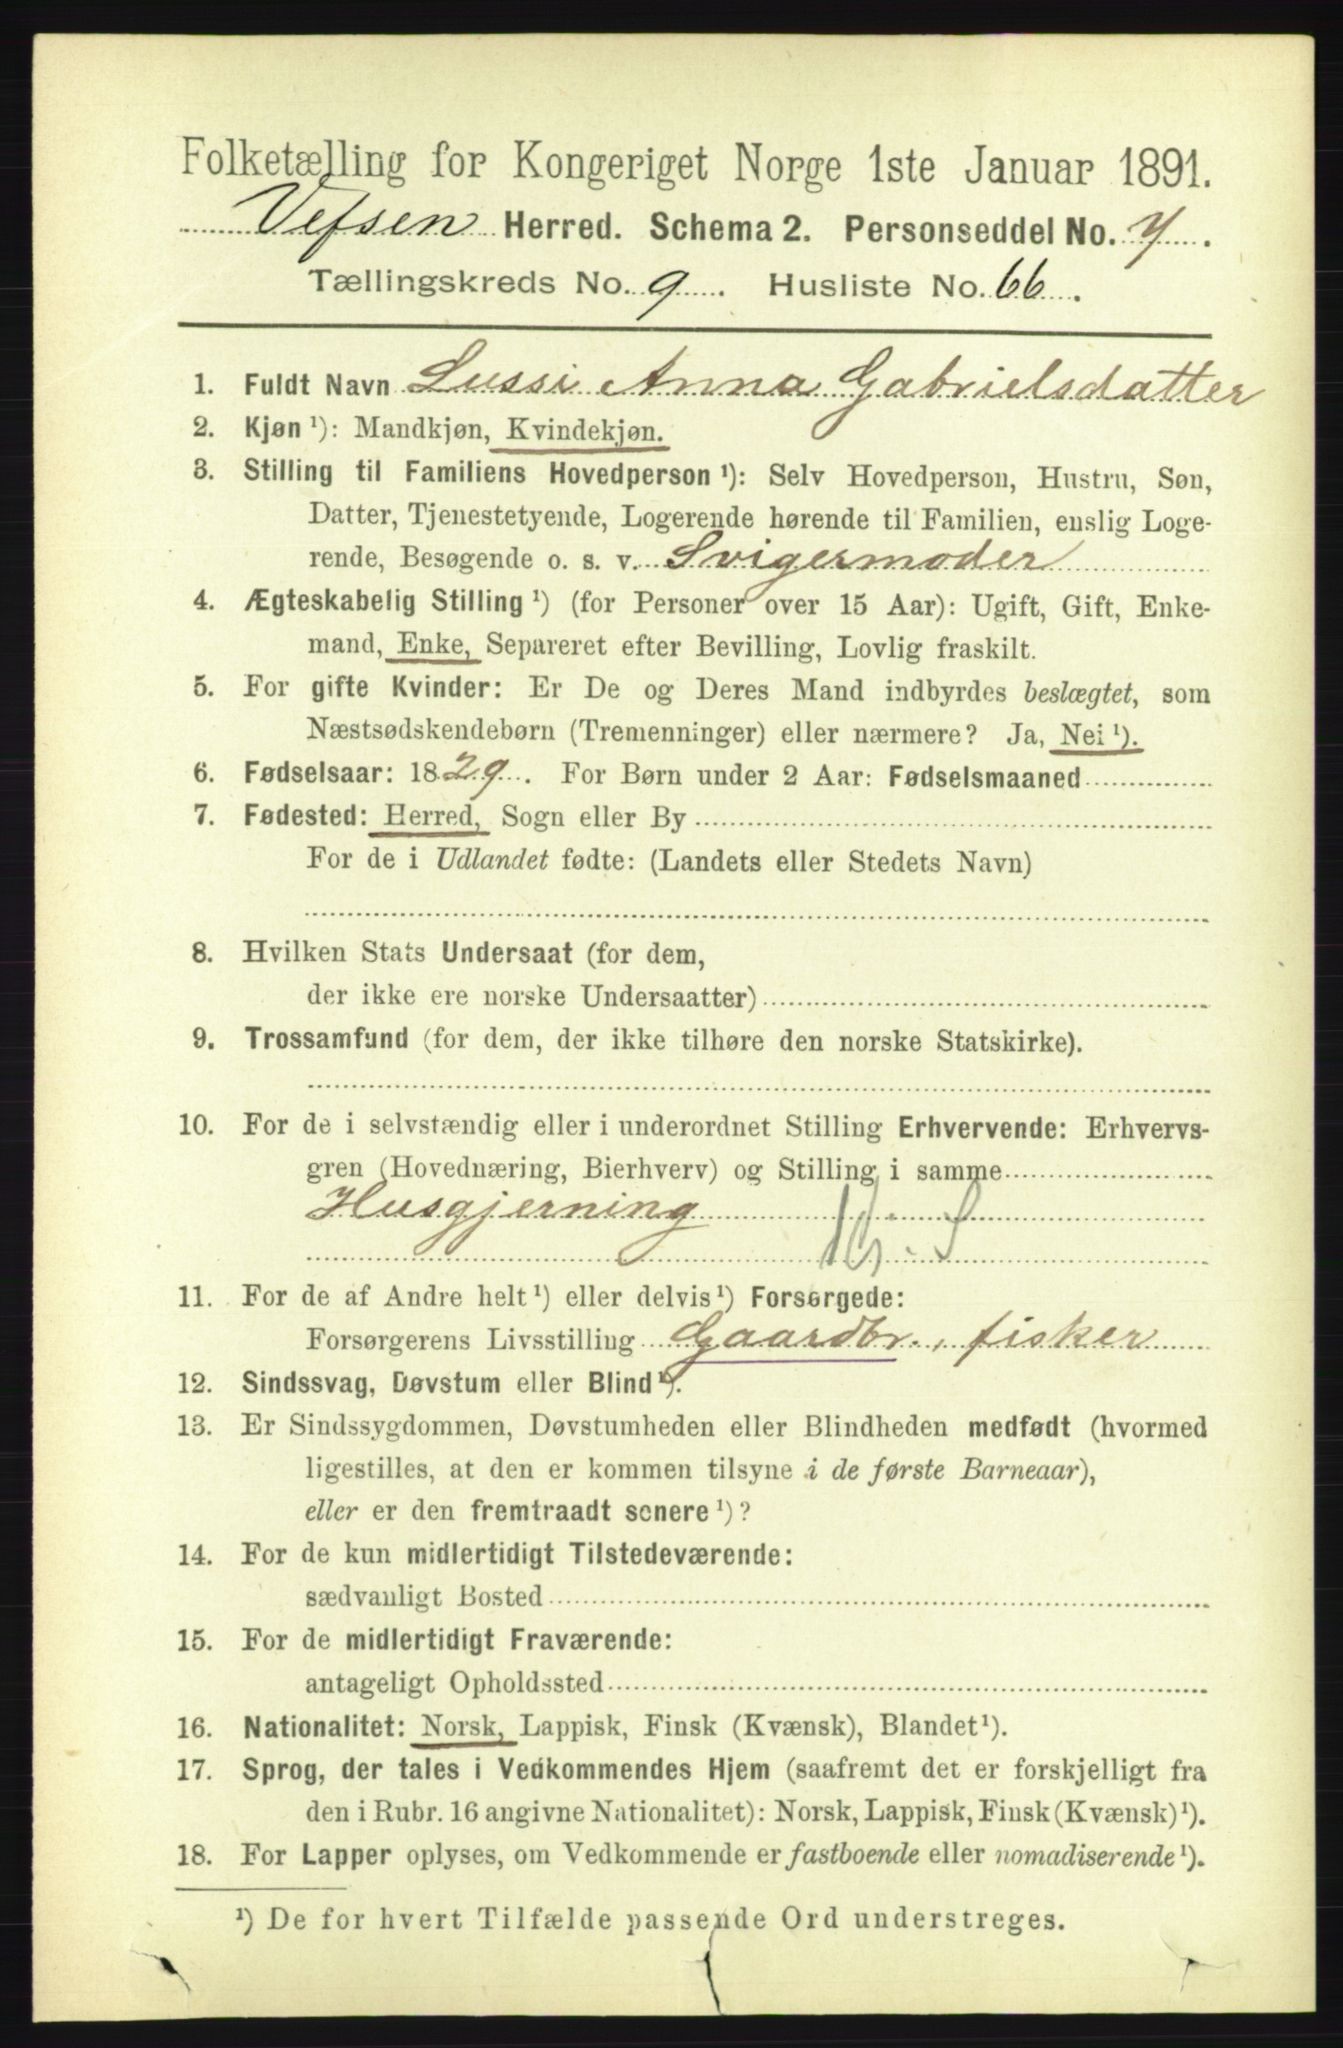 Folketælling for Kongeriget Norge 1ste Januar 1891.
Vefsen Herred. Schema 2. Personseddel No. 7.
Tællingskreds No. 9. Husliste No. 66.
1. Fuldt Navn Lussi Anna Gabrielsdatter
2. Kjøn ¹): Mandkjøn, Kvindekjøn.
3. Stilling til Familiens Hovedperson ¹): Selv Hovedperson, Hustru, Søn,
Datter, Tjenestetyende, Logerende hørende til Familien, enslig Loge-
rende, Besøgende o. s. v. Svigermoder
4. Ægteskabelig Stilling ¹) (for Personer over 15 Aar): Ugift, Gift, Enke-
mand, Enke, Separeret efter Bevilling, Lovlig fraskilt.
5. For gifte Kvinder: Er De og Deres Mand indbyrdes beslægtet, som
Næstsødskendebørn (Tremenninger) eller nærmere? Ja, Nei ¹).
6. Fødselsaar: 1829. For Børn under 2 Aar: Fødselsmaaned
7. Fødested: Herred, Sogn eller By
For de i Udlandet fødte: (Landets eller Stedets Navn)
8. Hvilken Stats Undersaat (for dem,
der ikke ere norske Undersaatter)
9. Trossamfund (for dem, der ikke tilhøre den norske Statskirke).
10. For de i selvstændig eller i underordnet Stilling Erhvervende: Erhvervs-
gren (Hovednæring, Bierhverv) og Stilling i samme
Husgjerning
11. For de af Andre helt ¹) eller delvis ¹) Forsørgede:
Forsørgerens Livsstilling Gaardbr., fisker
12. Sindssvag, Døvstum eller Blind ¹).
13. Er Sindssygdommen, Døvstumheden eller Blindheden medfødt (hvormed
ligestilles, at den er kommen tilsyne i de første Barneaar),
eller er den fremtraadt senere ¹)?
14. For de kun midlertidigt Tilstedeværende:
sædvanligt Bosted
15. For de midlertidigt Fraværende:
antageligt Opholdssted
16. Nationalitet: Norsk, Lappisk, Finsk (Kvænsk), Blandet ¹).
17. Sprog, der tales i Vedkommendes Hjem (saafremt det er forskjelligt fra
den i Rubr. 16 angivne Nationalitet): Norsk, Lappisk, Finsk (Kvænsk) ¹).
18. For Lapper oplyses, om Vedkommende er fastboende eller nomadiserende ¹).
¹) De for hvert Tilfælde passende Ord understreges.